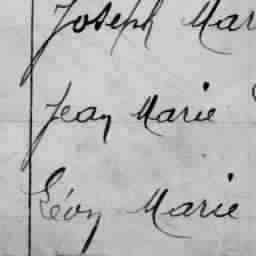 Joseph Mar
Jean Marie
Léon Marie